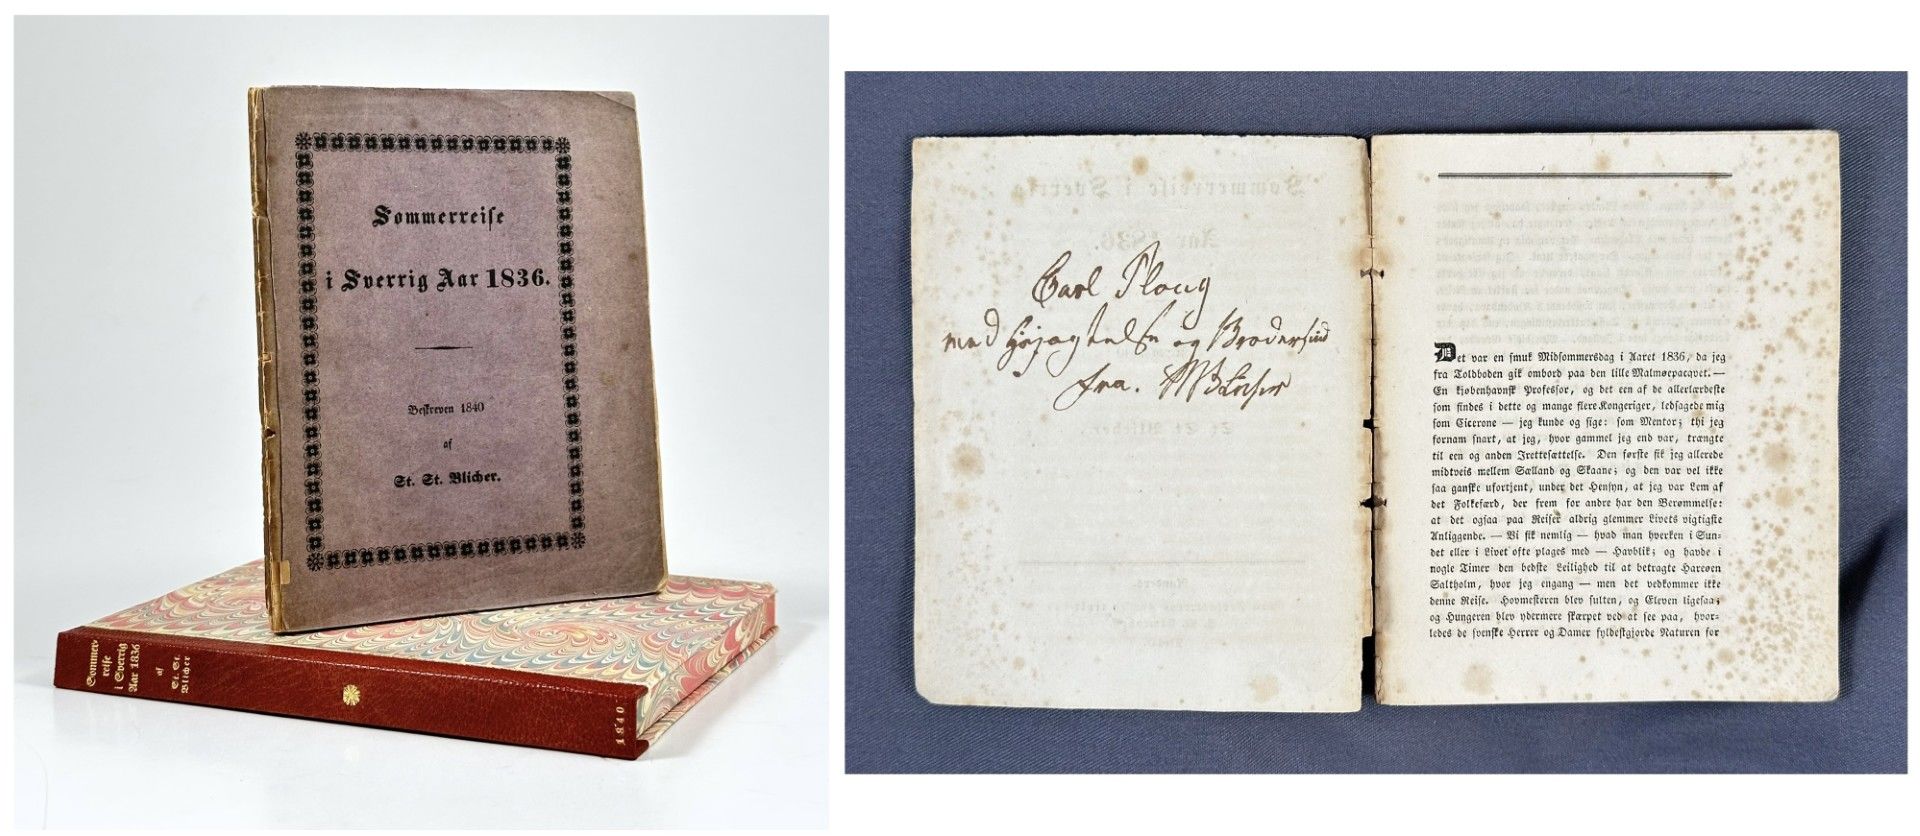 Sommerreise
i Sverrig Aar 1836.
Beskreven 1840
af
St. St. Blicher.
Sommer-
reise
i Sverrig
Aar 1836
af
St. St.
Blicher
1840
Carl Ploug
med Højagtelse og Brodersind
fra
Det var en smuk Midsommersdag i Aaret 1836, da jeg
fra Toldboden gik ombord paa den lille Malmøepacqvet. —
En kjøbenhavnsk Professor, og det een af de allerlærdeste
som findes i dette og mange flere Kongeriger, ledsagede mig
som Cicerone — jeg kunde og sige: som Mentor; thi jeg
fornam snart, at jeg, hvor gammel jeg end var, trængte
til een og anden Irettesættelse. Den første fik jeg allerede
midtveis mellem Sælland og Skaane; og den var vel ikke
saa ganske ufortjent, under det Hensyn, at jeg var Lem af
det Folkefærd, der frem for andre har den Berømmelse:
at det ogsaa paa Reiser aldrig glemmer Livets vigtigste
Anliggende. — Vi fik nemlig — hvad man hverken i Sun-
det eller i Livet ofte plages med — Havblik; og havde i
nogle Timer den bedste Leilighed til at betragte Hareøen
Saltholm, hvor jeg engang — men det vedkommer ikke
denne Reise. Hovmesteren blev sulten, og Eleven ligesaa;
og Hungeren blev ydermere skærpet ved at see paa, hvor-
ledes de svenske Herrer og Damer fyldestgjorde Naturen for